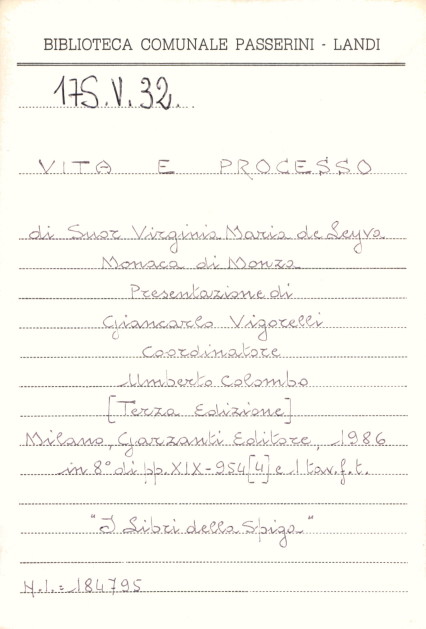 BIBLIOTECA COMUNALE PASSERINI - LANDI
175.V.32.
VITA E PROCESSO
di Suor Virginia Maria de Leyva
Monaca di Monza
Presentazione di
Giancarlo Vigorelli
Coordinatore
Umberto Colombo
[Terza Edizione]
Milano, Garzanti Editore, 1986
in 8° di pp. XIX-954[4] e 1 tav.f.t.
"I Libri della Spiga"
N.I.=184795